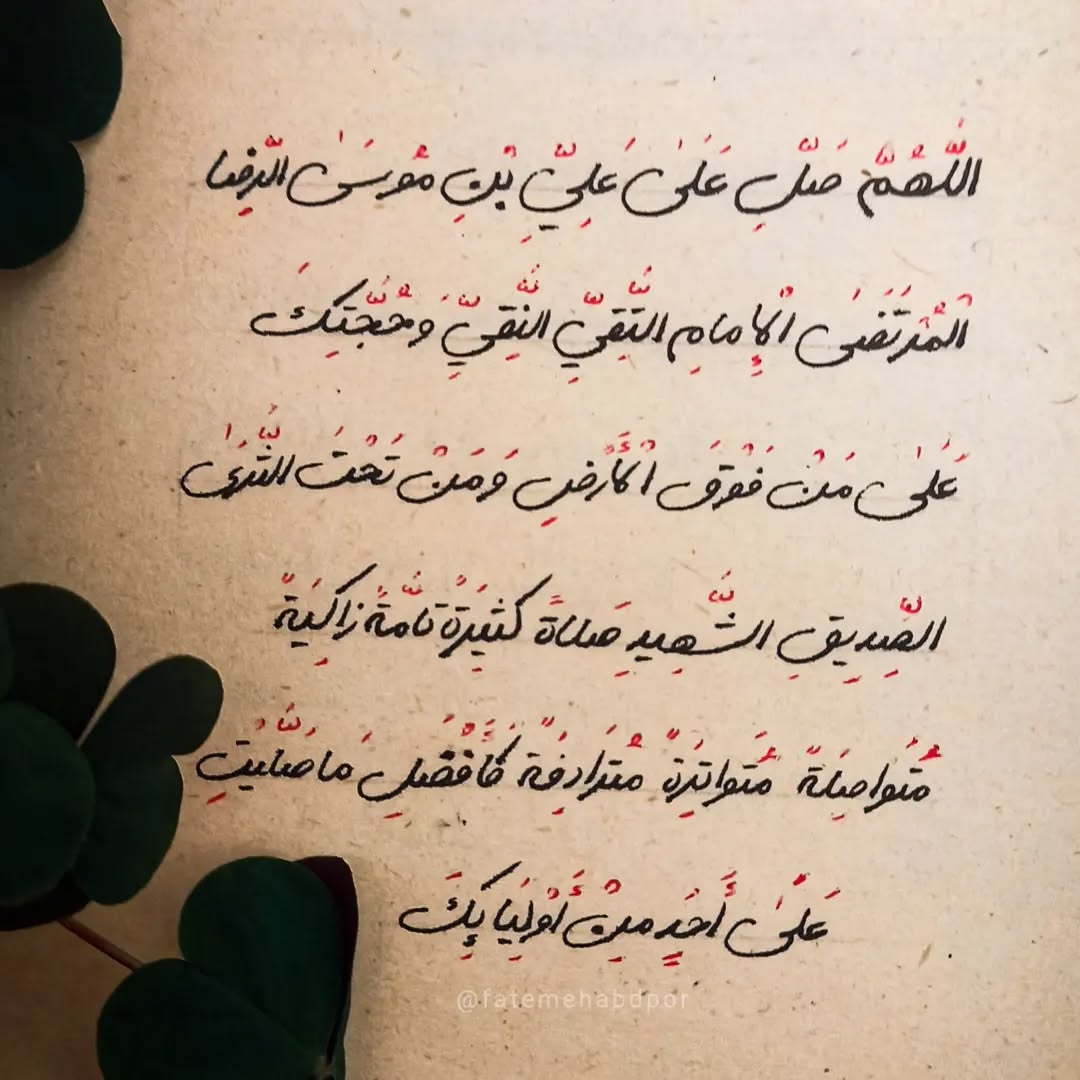 اللّٰهُمَّ صَلِّ عَلىٰ عَلِيِّ بْنِ مُوسَىٰ الرِّضا
الْمُرْتَضىٰ الْإِمامِ التَّقِيِّ النَّقِيِّ وَحُجَّتِكَ
عَلىٰ مَنْ فَوْقَ الْأَرْضِ وَمَنْ تَحْتَ الثَّرىٰ
الصِّدِيقِ الشَّهِيدِ صَلاةً كَثِيرَةً تامَّةً زاكِيَةً
مُتَواصِلَةً مُتَواتِرَةً مُتَرادِفَةً كَأَفْضَلِ ما صَلَّيْتَ
عَلىٰ أَحَدٍ مِنْ أَوْلِيَائِكَ
@fatemehabdpor